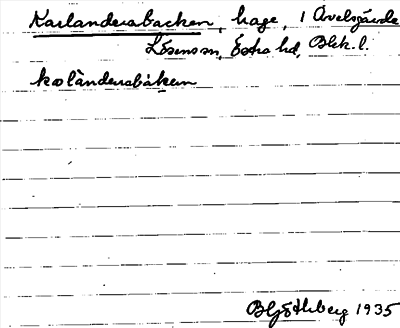 Karlandersbacken, hage, 1 Avelsgärde
Lösens sn, Östra hd, Blek. l.
kalàndersbàken
B Hjöthberg 1935